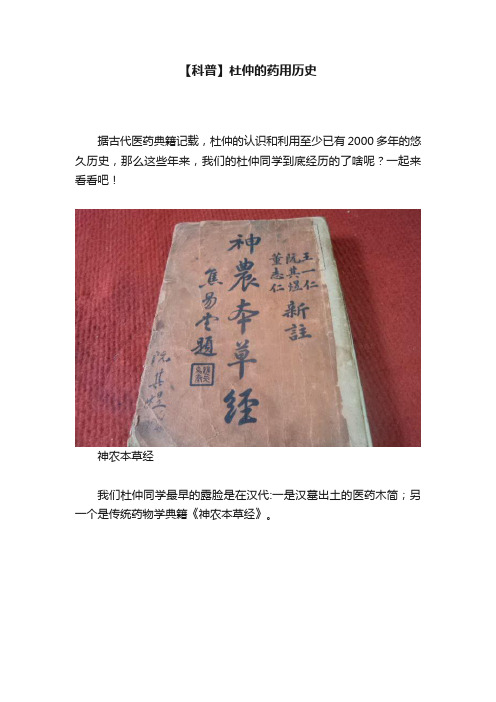 【科普】杜仲的药用历史
据古代医药典籍记载，杜仲的认识和利用至少已有2000多年的悠
久历史，那么这些年来，我们的杜仲同学到底经历的了啥呢？一起来
看看吧！
王一仁
阮其煜
董志仁
新註
神農本草經
焦易堂題
阮其煜
神农本草经
我们杜仲同学最早的露脸是在汉代:一是汉墓出土的医药木简；另
一个是传统药物学典籍《神农本草经》。